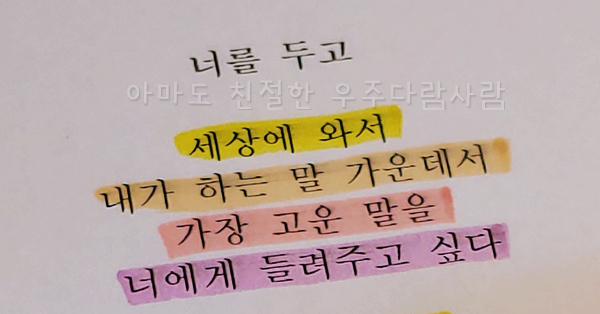 너를 두고
아마도 친절한 우주다람사람
세상에 와서
내가 하는 말 가운데서
가장 고운 말을
너에게 들려주고 싶다